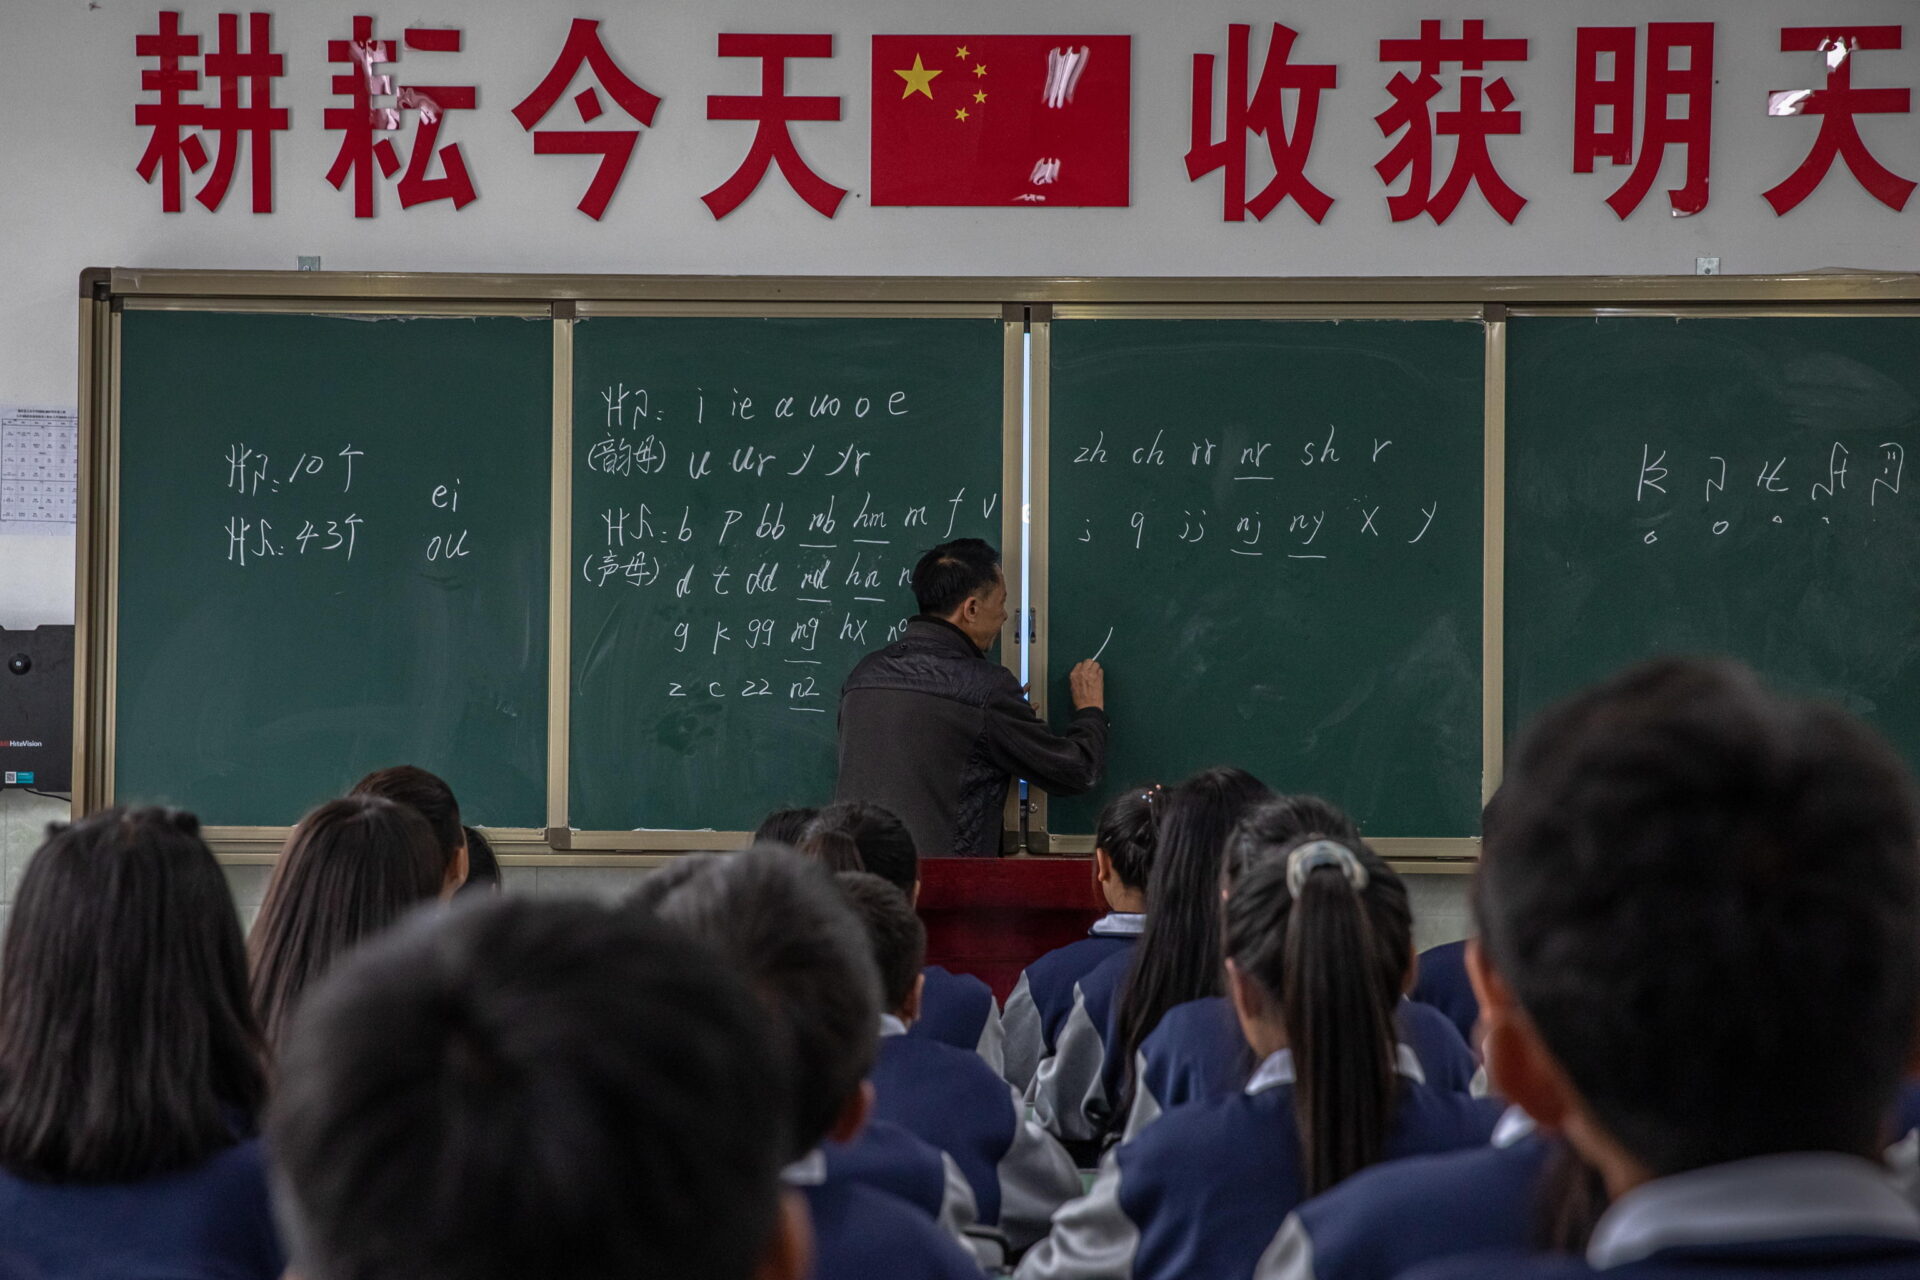 耕耘今天 收获明天
: 10个
: 43个
ei
ou
: i ie a uo o e
(韵母) u ur y yr
: b p bb nb hm m f v
(声母) d t dd nd hn n
g k gg mg hx
z c zz nz
zh ch rr nr sh r
j q jj nj ny x y
HiteVision